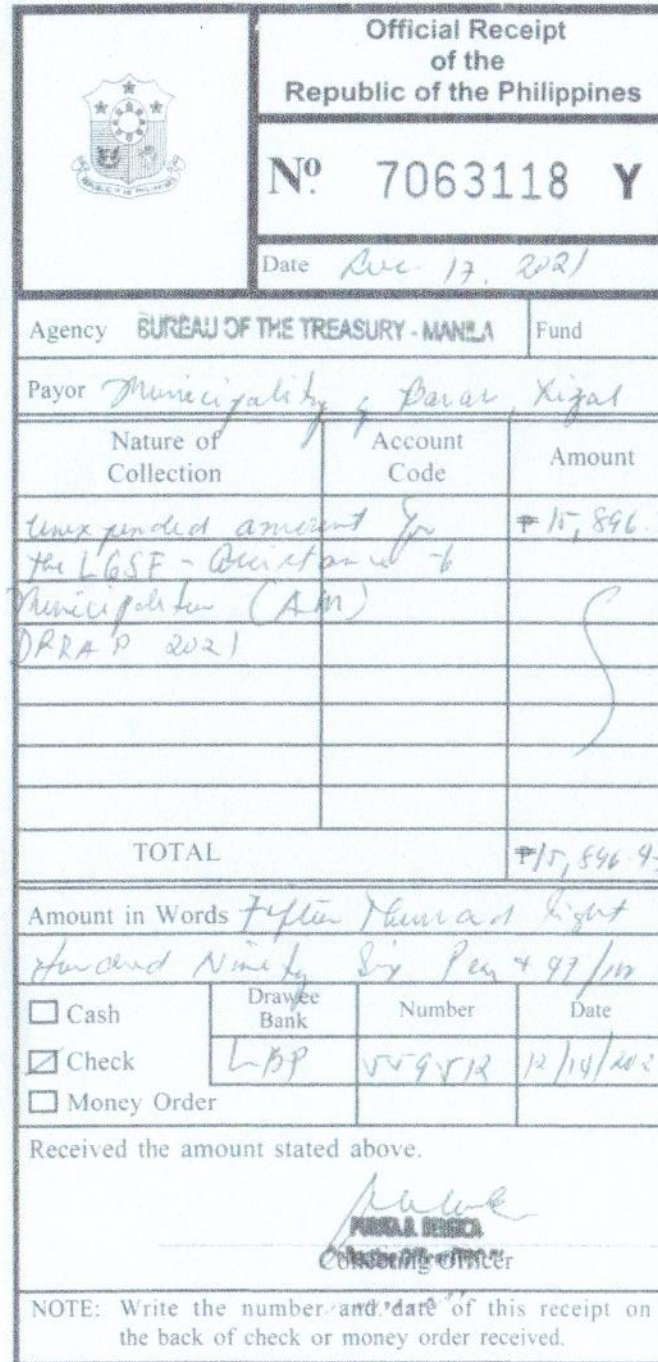 Official Receipt
of the
Republic of the Philippines
REPUBLIC OF THE PHILIPPINES
Nº 7063118 Y
Date Dec. 17, 2021
Agency BUREAU OF THE TREASURY - MANILA Fund
Payor Municipality of Baras, Rizal
Nature of Collection Account Code Amount
Unexpended amount for ₱15,896.
the LGSF - Assistance to
Municipalities (AM)
DRRAP 2021
TOTAL ₱15,896.9
Amount in Words Fifteen Thousand Eight
Hundred Ninety Six Pesos + 97/100
Cash Drawee Bank Number Date
Check LBP 559512 12/14/202
Money Order
Received the amount stated above.
Collecting Officer
NOTE: Write the number and date of this receipt on
the back of check or money order received.